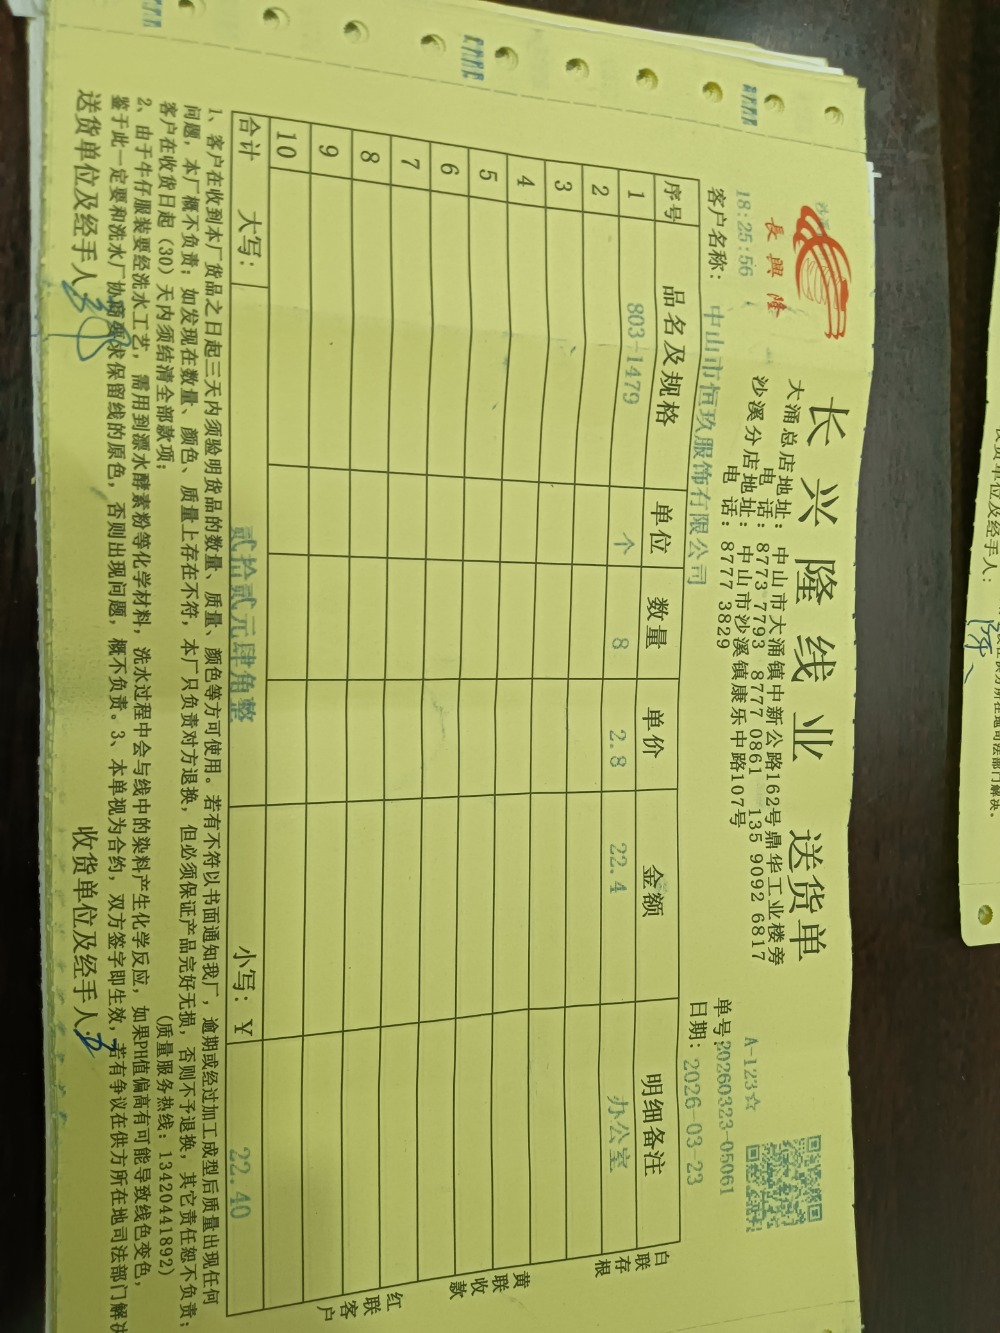 長興隆
长兴隆线业 送货单
A-123☆
大涌总店地址: 中山市大涌镇中新公路162号鼎华工业楼旁
电 话: 8773 7793 8777 0861 135 9092 6817
沙溪分店地址: 中山市沙溪镇康乐中路107号
电 话: 8777 3829
18:25:56
单号:20260323-05061
客户名称: 中山市恒玖服饰有限公司
日期: 2026-03-23
序号 品名及规格 单位 数量 单价 金额 明细备注
1 803-1479 个 8 2.8 22.4 办公室
2
3
4
5
6
7
8
9
10
合计 大写: 贰拾贰元肆角整 小写: ¥ 22.40
白联存根
黄联收款
红联客户
1、客户在收到本厂货品之日起三天内须验明货品的数量、质量、颜色等方可使用。若有不符以书面通知我厂,逾期或经过加工成型后质量出现任何
问题,本厂概不负责;如发现在数量、颜色、质量上存在不符,本厂只负责对方退换,但必须保证产品完好无损,否则不予退换,其它责任恕不负责;
客户在收货日起(30)天内须结清全部款项; (质量服务热线:13420441892)
2、由于牛仔服装要经洗水工艺,需用到漂水酵素粉等化学材料,洗水过程中会与线中的染料产生化学反应,如果PH值偏高有可能导致线色变色,
鉴于此一定要和洗水厂协商要求保留线的原色,否则出现问题,概不负责。3、本单视为合约,双方签字即生效,若有争议在供方所在地司法部门解决
送货单位及经手人: 收货单位及经手人:
货单位及经手人:
所在地司法部门解决。